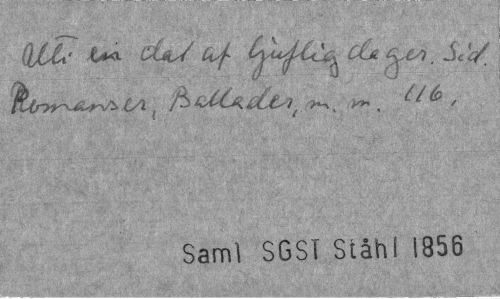 Uti en dal af ljuflig dager. Sid.
Romanser, Ballader, m. m. 116.
Saml SGST Ståhl 1856